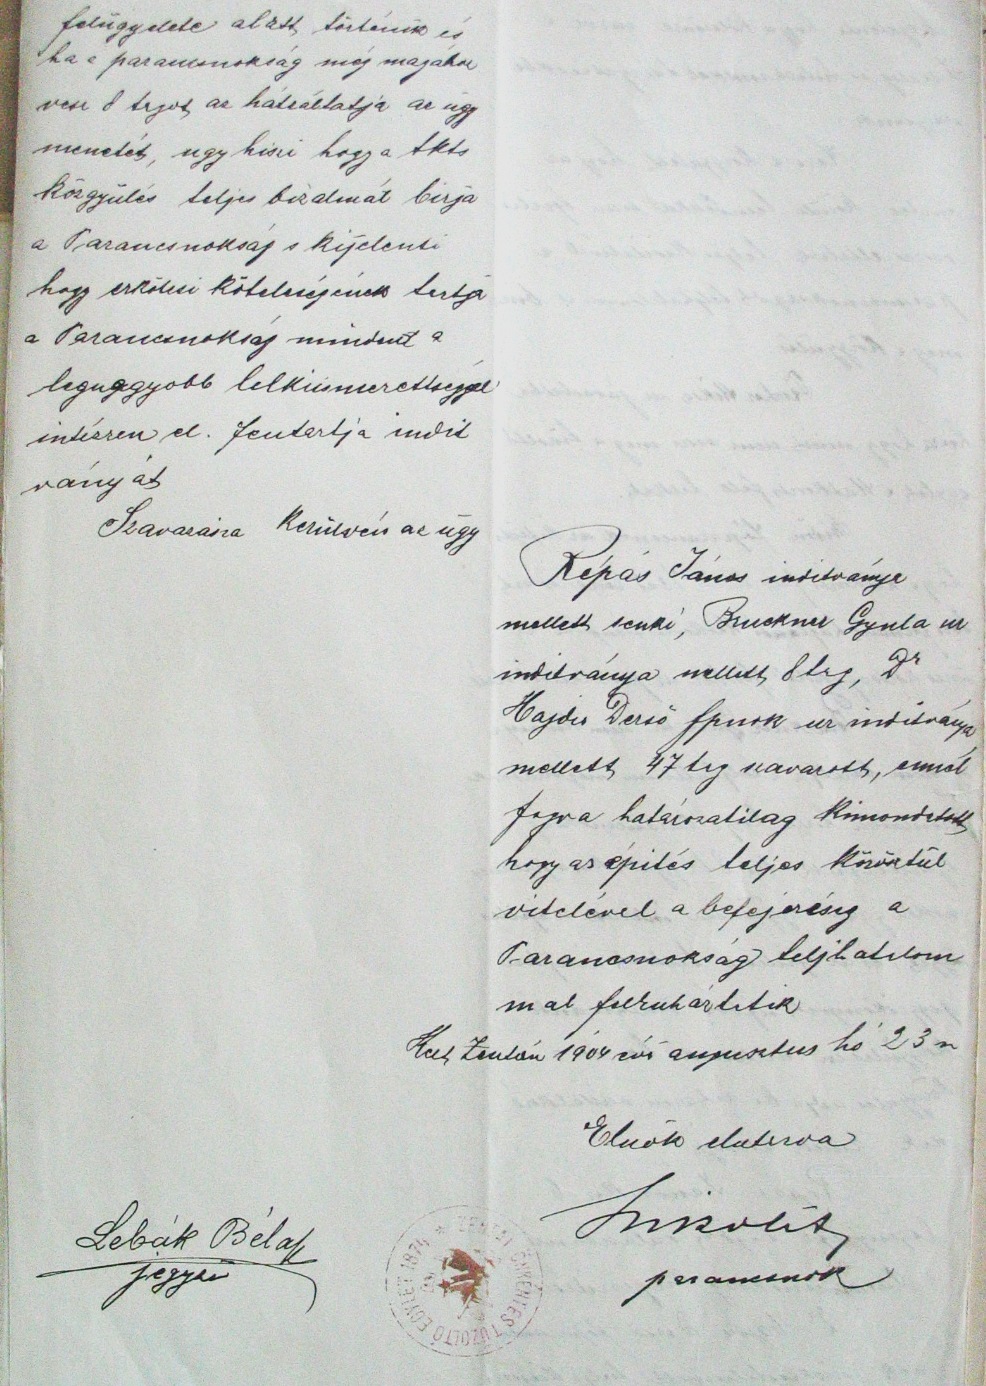 felügyelete alatt történik és
ha a parancsnokság még magához
vesz 8 tagot az hátráltatja az ügy
menetét, ugy hiszi hogy a tkts
közgyülés teljes bizalmát birja
a Parancsnokság s kijelenti
hogy erkölcsi kötelességének tartja
a Parancsnokság mindent a
legnagyobb lelkiismeretességgel
intézzen el. Fentartja indit
ványát
Szavazásra kerülvén az ügy
Répás János inditványa
mellett senki, Bruckner Gyula ur
inditványa mellett 8 tag, Dr
Hajdu Dersó fpnok ur inditványa
mellett 47 tag szavazott, ennél
fogva határozatilag kimondatott
hogy az épités teljes körösztül
vitelével a befejezésig a
Parancsnokság teljhatalom
mal felruháztatik
Kelt Zentán 1904 évi augusztus hó 23 n
Elnök elutazva
parancsnok
Lebák Béla
jegyző
ZENTAI ÖNKÉNTES TŰZOLTÓ EGYLET 1874